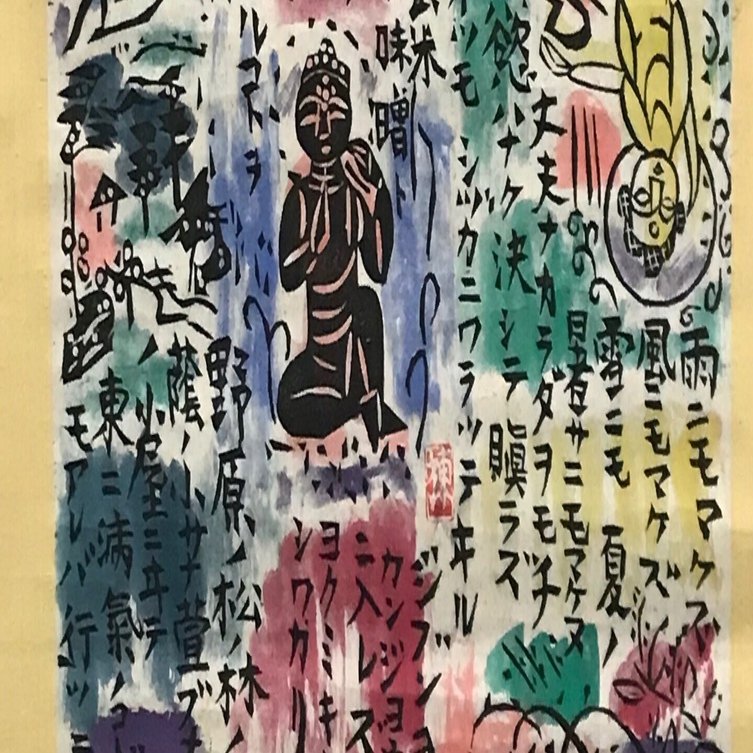 雨ニモマケズ
風ニモマケズ
雪ニモ 夏ノ
暑サニモマケヌ
丈夫ナカラダヲモチ
慾ハナク 決シテ 瞋ラズ
ツモ シヅカニワラッテヰル
米
味噌ト
ルコトヲ
ジブンヲ
カンジョウ
ニ入レズ
ヨクミキ
シワカリ
野原ノ松ノ林ノ
蔭ノ小サナ萱ブキ
ノ小屋ニヰテ
東ニ病氣ノコド
モアレバ行ッテ